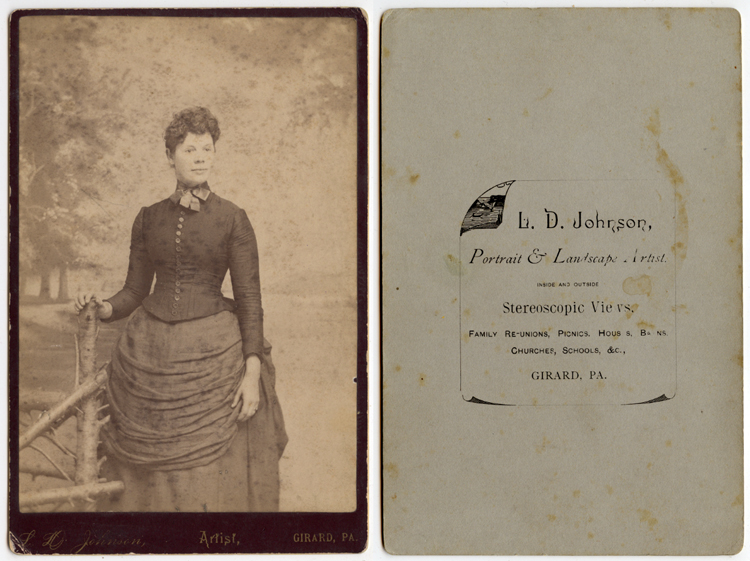 L. D. Johnson, Artist, GIRARD, PA.
L. D. Johnson,
Portrait & Landscape Artist.
INSIDE AND OUTSIDE
Stereoscopic Views.
FAMILY RE-UNIONS, PICNICS, HOUSES, BARNS,
CHURCHES, SCHOOLS, &C.,
GIRARD, PA.